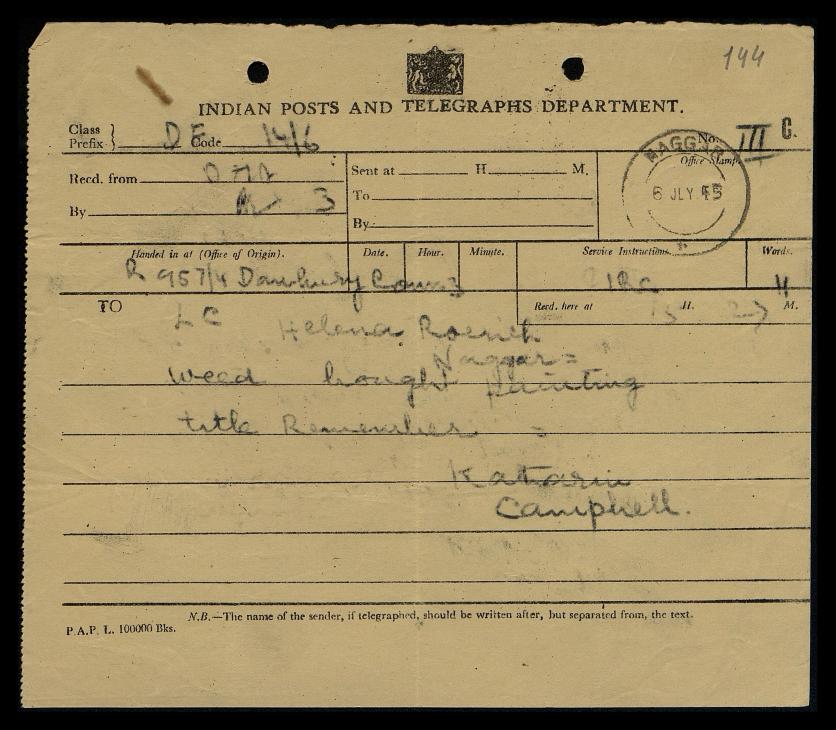 144
INDIAN POSTS AND TELEGRAPHS DEPARTMENT.
Class
Prefix DE Code 14/6
No. III C.
Office Stamp.
NAGGAR
6 JLY 45
Recd. from
By 3
Sent at H. M.
To
By
Handed in at (Office of Origin). Date. Hour. Minute. Service Instructions. Words.
R 957/4 Danbury Conn 3
TO
Recd. here at H. M.
LC Helena Roerich
Naggar =
Weed bought painting
title Remember =
Katharin
Campbell.
N.B.—The name of the sender, if telegraphed, should be written after, but separated from, the text.
P.A.P. L. 100000 Bks.